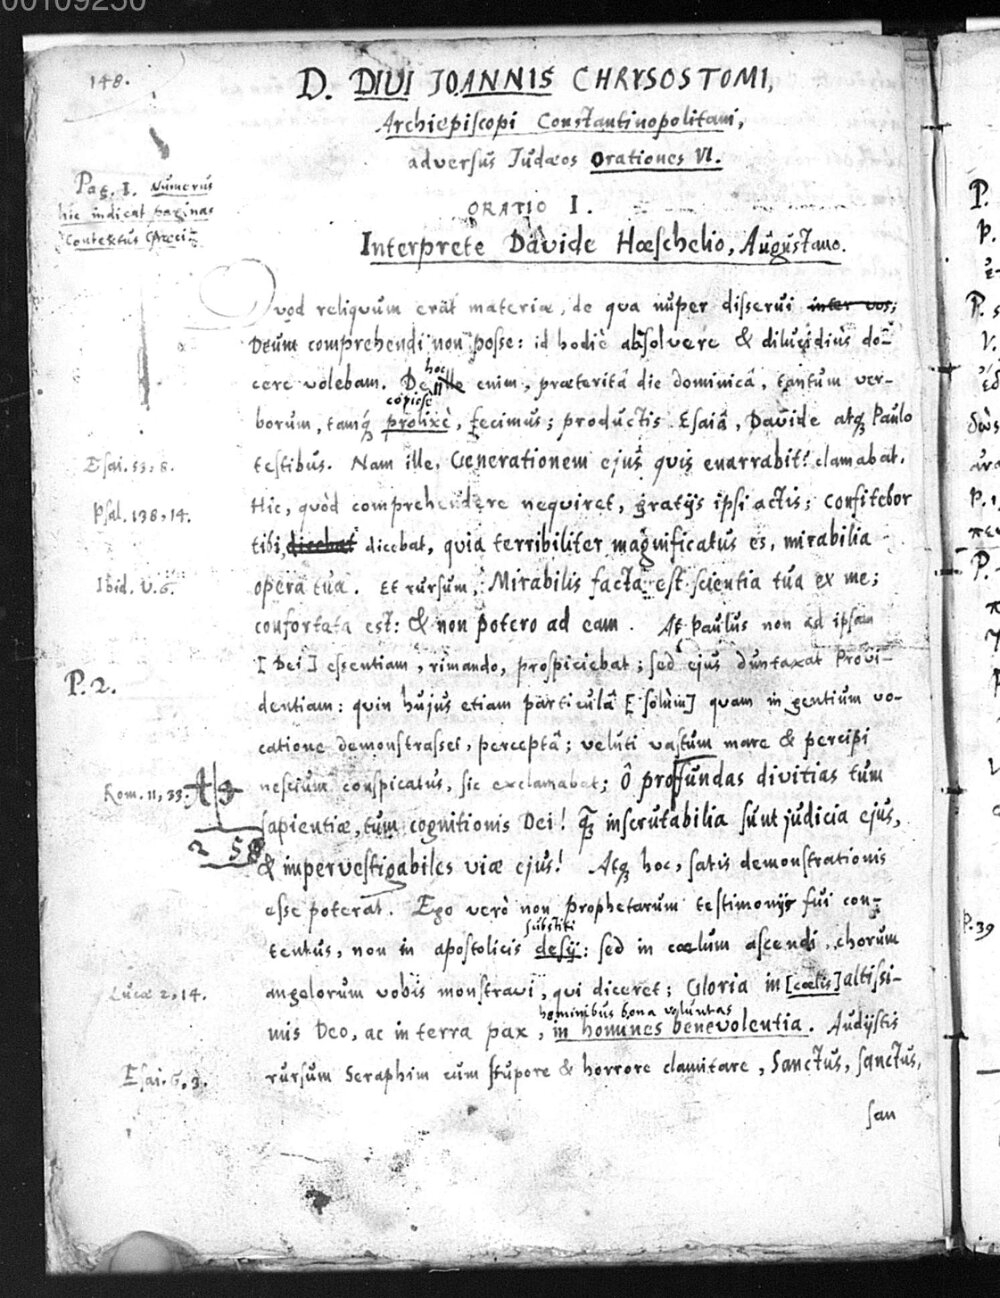 00109250
148.
D. DIVI JOANNIS CHRYSOSTOMI,
Archiepiscopi Constantinopolitani,
adversus Judæos Orationes VI.
Pag. I. Numerus
hic indicat paginas
Contextus Græci
ORATIO I.
Interprete Davide Hœschelio, Augustano.
Quod reliquum erat materiæ, de qua nuper disserui inter vos,
Deum comprehendi non posse: id hodiè absolvere & dilucidiùs do-
hoc
cere volebam. De ille enim, præteritâ die dominicâ, tantum ver-
copiosè
borum, tamq; prolixè, fecimus; productis Esaiâ, Davide atq; Paulo
Esai. 53, 8.
testibus. Nam ille, Generationem ejus quis enarrabit? clamabat.
Psal. 138, 14.
Hic, quòd comprehendere nequiret, gratijs ipsi actis; confitebor
tibi, dicebat dicebat, quia terribiliter magnificatus es, mirabilia
Ibid. v. 6.
opera tua. Et rursum, Mirabilis facta est scientia tua ex me;
confortata est: & non potero ad eam. At Paulus non ad ipsam
[Dei] essentiam, rimando, prospiciebat; sed ejus duntaxat Provi-
P. 2.
dentiam: quin hujus etiam particulâ [solùm] quam in gentium vo-
catione demonstrasset, perceptâ; veluti vastum mare & percipi
Rom. 11, 33.
nescium conspicatus, sic exclamabat; Ô profundas divitias tum
sapientiæ, tum cognitionis Dei! q; inscrutabilia sunt judicia ejus,
2 58
& impervestigabiles viæ ejus! Atq; hoc, satis demonstrationis
esse poterat. Ego verò non Prophetarum testimonijs fui con-
substiti
tentus, non in apostolicis desij: sed in cœlum ascendi, chorum
Lucæ 2, 14.
angelorum vobis monstravi, qui diceret; Gloria in [cœlis] altissi-
hominibus bona voluntas
mis Deo, ac in terra pax, in homines benevolentia. Audijstis
Esai. 6, 3.
rursum Seraphim cum stupore & horrore clamitare, Sanctus, sanctus,
san
P.
P. 39